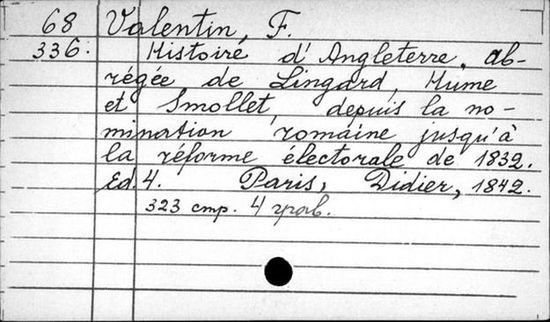 68 Valentin, F.
336. Histoire d'Angleterre, ab-
régée de Lingard, Hume
et Smollet, depuis la no-
mination romaine jusqu'à
la réforme électorale de 1832.
Ed. 4. Paris, Didier, 1842.
323 стр. 4 грав.